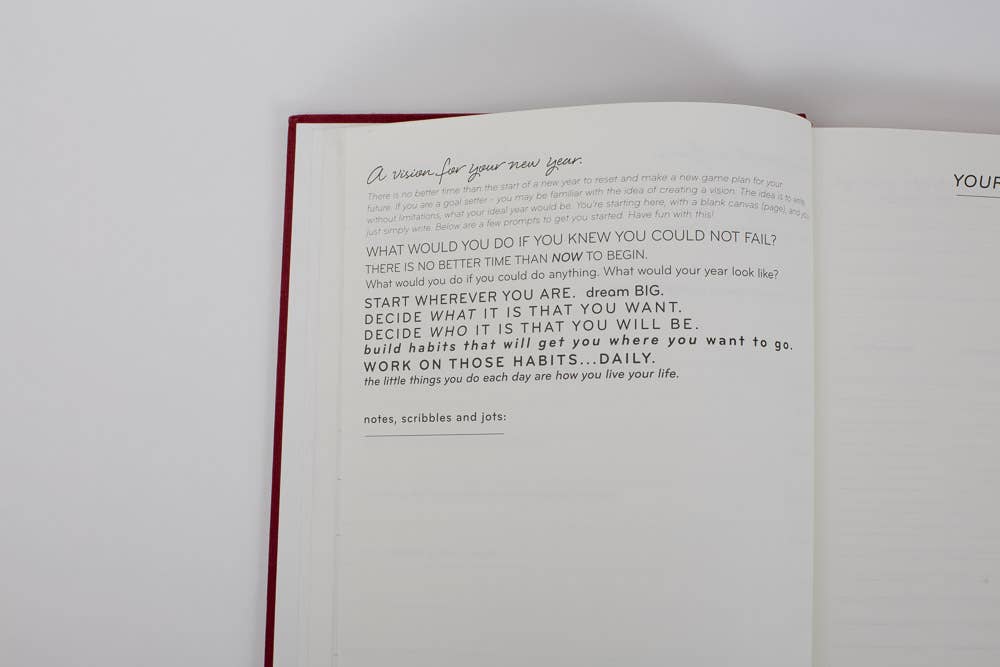 A vision for your new year.
There is no better time than the start of a new year to reset and make a new game plan for your
future. If you are a goal setter – you may be familiar with the idea of creating a vision. The idea is to write,
without limitations, what your ideal year would be. You're starting here, with a blank canvas (page), and you
just simply write. Below are a few prompts to get you started. Have fun with this!
WHAT WOULD YOU DO IF YOU KNEW YOU COULD NOT FAIL?
THERE IS NO BETTER TIME THAN NOW TO BEGIN.
What would you do if you could do anything. What would your year look like?
START WHEREVER YOU ARE. dream BIG.
DECIDE WHAT IT IS THAT YOU WANT.
DECIDE WHO IT IS THAT YOU WILL BE.
build habits that will get you where you want to go.
WORK ON THOSE HABITS...DAILY.
the little things you do each day are how you live your life.
notes, scribbles and jots:
YOUR